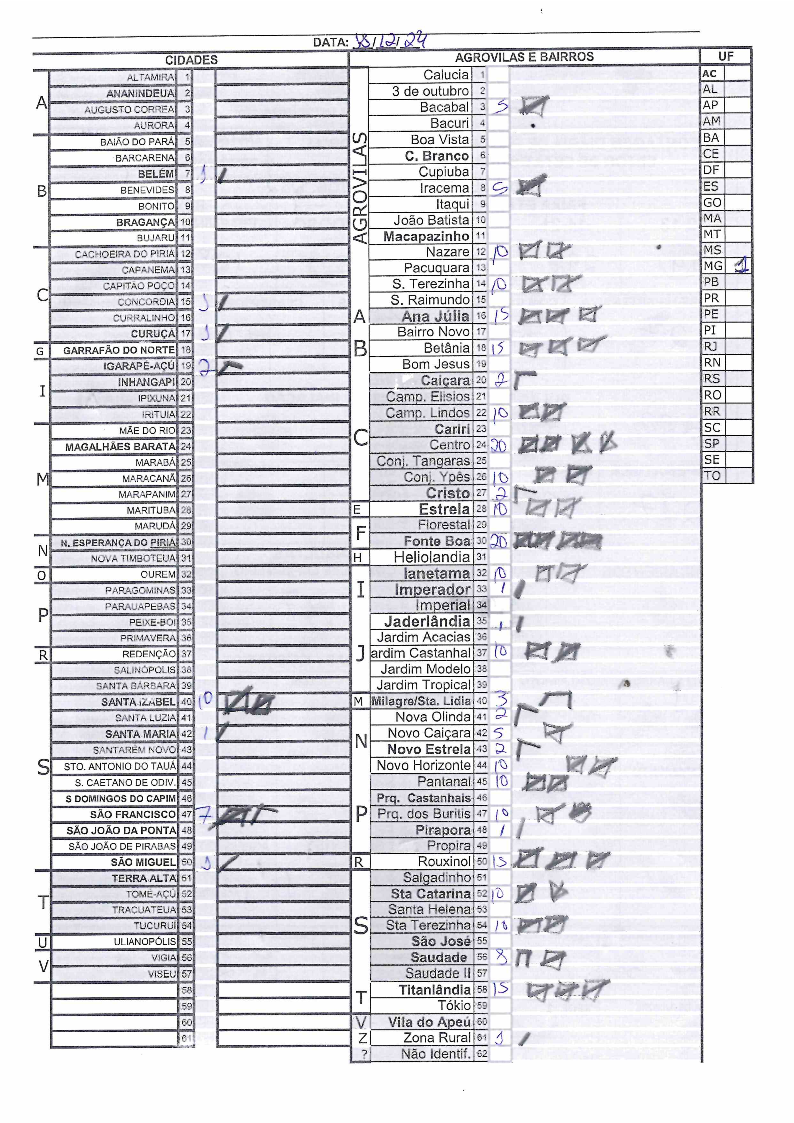 DATA: 18/12/24
CIDADES
A
ALTAMIRA 1
ANANINDEUA 2
AUGUSTO CORREA 3
AURORA 4
B
BAIÃO DO PARÁ 5
BARCARENA 6
BELÉM 7 1
BENEVIDES 8
BONITO 9
BRAGANÇA 10
BUJARU 11
C
CACHOEIRA DO PIRIA 12
CAPANEMA 13
CAPITÃO POÇO 14
CONCORDIA 15 1
CURRALINHO 16
CURUÇA 17 1
G
GARRAFÃO DO NORTE 18
I
IGARAPE-AÇÚ 19 2
INHANGAPI 20
IPIXUNA 21
IRITUIA 22
M
MÃE DO RIO 23
MAGALHÃES BARATA 24
MARABÁ 25
MARACANÃ 26
MARAPANIM 27
MARITUBA 28
MARUDÁ 29
N
N. ESPERANÇA DO PIRIA 30
NOVA TIMBOTEUA 31
O
OUREM 32
P
PARAGOMINAS 33
PARAUAPEBAS 34
PEIXE-BOI 35
PRIMAVERA 36
R
REDENÇÃO 37
S
SALINÓPOLIS 38
SANTA BÁRBARA 39
SANTA IZABEL 40 10
SANTA LUZIA 41
SANTA MARIA 42 1
SANTARÉM NOVO 43
STO. ANTONIO DO TAUÁ 44
S. CAETANO DE ODIV. 45
S DOMINGOS DO CAPIM 46
SÃO FRANCISCO 47 7
SÃO JOÃO DA PONTA 48
SÃO JOÃO DE PIRABAS 49
SÃO MIGUEL 50 1
T
TERRA ALTA 51
TOMÉ-AÇÚ 52
TRACUATEUA 53
TUCURUI 54
U
ULIANOPÓLIS 55
V
VIGIA 56
VISEU 57
58
59
60
61
AGROVILAS E BAIRROS
AGROVILAS
Calucia 1
3 de outubro 2
Bacabal 3 5
Bacuri 4
Boa Vista 5
C. Branco 6
Cupiuba 7
Iracema 8 5
Itaqui 9
João Batista 10
Macapazinho 11
Nazare 12 10
Pacuquara 13
S. Terezinha 14 10
S. Raimundo 15
A
Ana Júlia 16 15
B
Bairro Novo 17
Betânia 18 15
Bom Jesus 19
C
Caiçara 20 2
Camp. Elisios 21
Camp. Lindos 22 10
Cariri 23
Centro 24 20
Conj. Tangaras 25
Conj. Ypês 26 10
Cristo 27 2
E
Estrela 28 10
F
Florestal 29
Fonte Boa 30 20
H
Heliolandia 31
I
Ianetama 32 10
Imperador 33 1
Imperial 34
J
Jaderlândia 35 1
Jardim Acacias 36
ardim Castanhal 37 10
Jardim Modelo 38
Jardim Tropical 39
M
Milagre/Sta. Lidia 40 3
N
Nova Olinda 41 2
Novo Caiçara 42 5
Novo Estrela 43 2
Novo Horizonte 44 10
P
Pantanal 45 10
Prq. Castanhais 46
Prq. dos Buritis 47 10
Pirapora 48 1
Propira 49
R
Rouxinol 50 15
S
Salgadinho 51
Sta Catarina 52 10
Santa Helena 53
Sta Terezinha 54 10
São José 55
Saudade 56 8
Saudade II 57
T
Titanlândia 58 15
Tókio 59
V
Vila do Apeú 60
Z
Zona Rural 61 1
?
Não Identif. 62
UF
AC
AL
AP
AM
BA
CE
DF
ES
GO
MA
MT
MS
MG 1
PB
PR
PE
PI
RJ
RN
RS
RO
RR
SC
SP
SE
TO